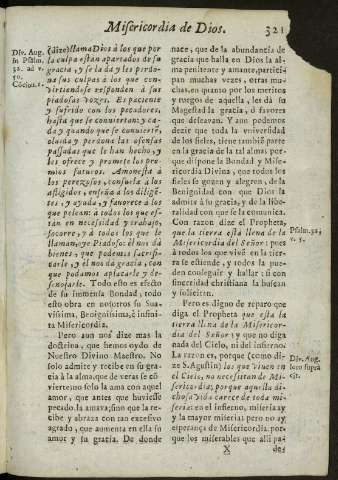 Misericordia de Dios. 321
Div. Aug.
in Psalm.
32. ad v.
50.
Cócion.1.
(dize) llama Dios à los que por
la culpa están apartados de su
gracia, y se la dá y les perdo-
na sus culpas à los que con-
virtiendose responden à sus
piadosas vozes. Es paciente
y sufrido con los pecadores,
hasta que se conviertan; ca-
da y quando que se convierté,
olvida y perdona las ofensas
passadas que le han hecho, y
les ofrece y promete los pre-
mios futuros. Amonesta à
los perezosos, consuela à los
afligidos, enseña à los diligé-
tes, y ayuda, y favorece à los
que pelean: à todos los que es-
tan en necesidad y trabajo,
socorre, y à todos los que le
llaman, oye Piadoso: él nos dá
bienes, que podemos sacrifi-
carle, y él nos dá gracia, con
que podamos aplacarle y de-
senojarle. Todo esto es efecto
de su immensa Bondad, todo
esto obra en nosotros su Sua-
vissima, Benignissima, è infini-
ta Misericordia.
Pero aun nos dize mas la
doctrina, que hemos oydo de
Nuestro Divino Maestro. No
solo admite y recibe en su gra-
cia à la alma, que de veras se có-
vierte, no solo la ama con aquel
amor, que antes que huviesse
pecado. la amava; sino que la re-
cibe y abraza con tan excesivo
agrado, que aumenta en ella su
amor y su gracia. De donde
nace, que de la abundancia de
gracia que halla en Dios la al-
ma penitente y amante, partici-
pan muchas vezes, otras mu-
chas, en quanto por los meritos
y ruegos de aquella, les dá su
Magestad la gracia, ò favores
que deseavan. Y aun podemos
dezir que toda la vniversidad
de los fieles, tiene tambié par-
te en la gracia de la tal alma; por
que dispone la Bondad y Mise-
ricordia Divina, que todos los
fieles se gozen y alegren, de la
Benignidad con que Dios la
admite à su gracia, y de la libe-
ralidad con que se la comunica.
Con razon dize el Propheta,
que la tierra està llena de la
Misericordia del Señor: pues
à todos los que vivé en la tier-
ra se estiende, y todos la pue-
den conseguir y hallar; si con
sinceridad christiana la buscan
y solicitan.
Psalm. 32,
v. 5.
Pero es digno de reparo que
diga el Propheta que esta la
tierra llena de la Misericor-
dia del Señor; y que no diga
nada del Cielo, ni del infierno.
La razon es, porque (como di-
ze S. Agustin) los que viven en
el Cielo, no necesitan de Mi-
sericordia; porque aquella di-
chosa vida carece de toda mi-
seria: en el infierno, miseria ay
y la mayor miseria; pero no ay
esperanza de Misericordia. por-
que los miserables que alli pa-
Div. Aug.
loco suprà
cit.
X des